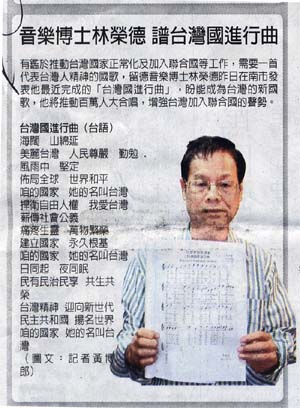 音樂博士林榮德 譜台灣國進行曲
有鑑於推動台灣國家正常化及加入聯合國等工作，需要一首
代表台灣人精神的國歌，留德音樂博士林榮德昨日在南市發
表他最近完成的「台灣國進行曲」，盼能成為台灣的新國
歌，他將推動百萬人大合唱，增強台灣加入聯合國的聲勢。
台灣國進行曲（台語）
海闊 山綿延
美麗台灣 人民尊嚴 勤勉
風雨中 堅定
佈局全球 世界和平
咱的國家 她的名叫台灣
捍衛自由人權 我愛台灣
薪傳社會公義
痛疼生靈 萬物繁榮
建立國家 永久根基
咱的國家 她的名叫台灣
日同起 夜同眠
民有民治民享 共生共
榮
台灣精神 迎向新世代
民主共和國 揚名世界
咱的國家 她的名叫台
灣
（圖文：記者黃博
郎）